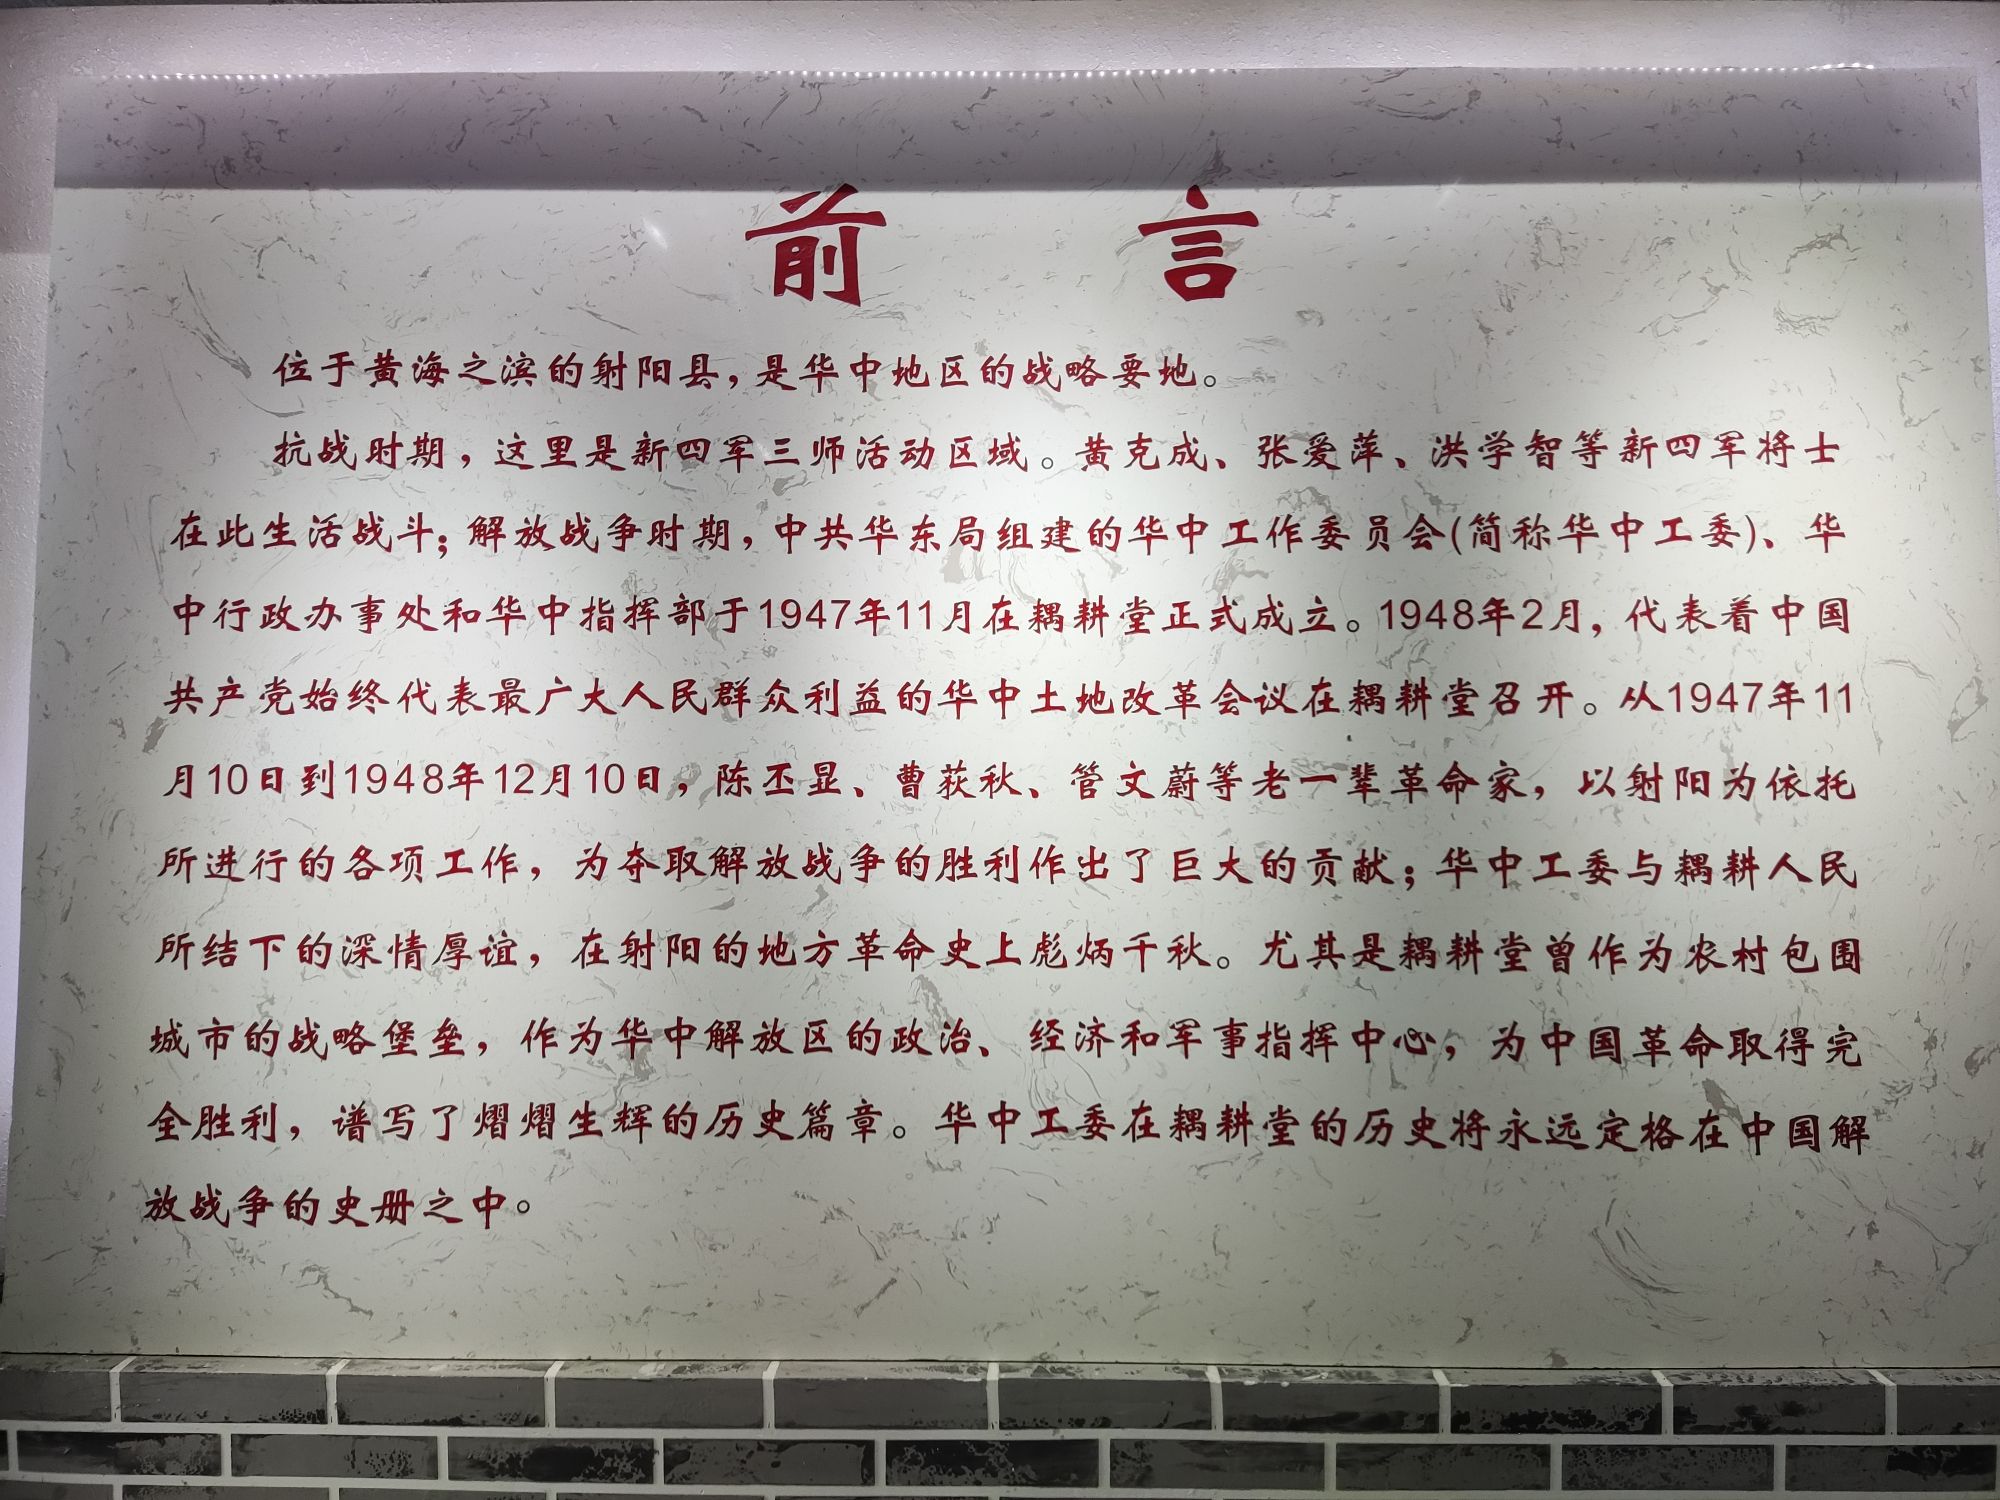 前言
位于黄海之滨的射阳县，是华中地区的战略要地。
抗战时期，这里是新四军三师活动区域。黄克成、张爱萍、洪学智等新四军将士
在此生活战斗；解放战争时期，中共华东局组建的华中工作委员会(简称华中工委)、华
中行政办事处和华中指挥部于1947年11月在耦耕堂正式成立。1948年2月，代表着中国
共产党始终代表最广大人民群众利益的华中土地改革会议在耦耕堂召开。从1947年11
月10日到1948年12月10日，陈丕显、曹荻秋、管文蔚等老一辈革命家，以射阳为依托
所进行的各项工作，为夺取解放战争的胜利作出了巨大的贡献；华中工委与耦耕人民
所结下的深情厚谊，在射阳的地方革命史上彪炳千秋。尤其是耦耕堂曾作为农村包围
城市的战略堡垒，作为华中解放区的政治、经济和军事指挥中心，为中国革命取得完
全胜利，谱写了熠熠生辉的历史篇章。华中工委在耦耕堂的历史将永远定格在中国解
放战争的史册之中。